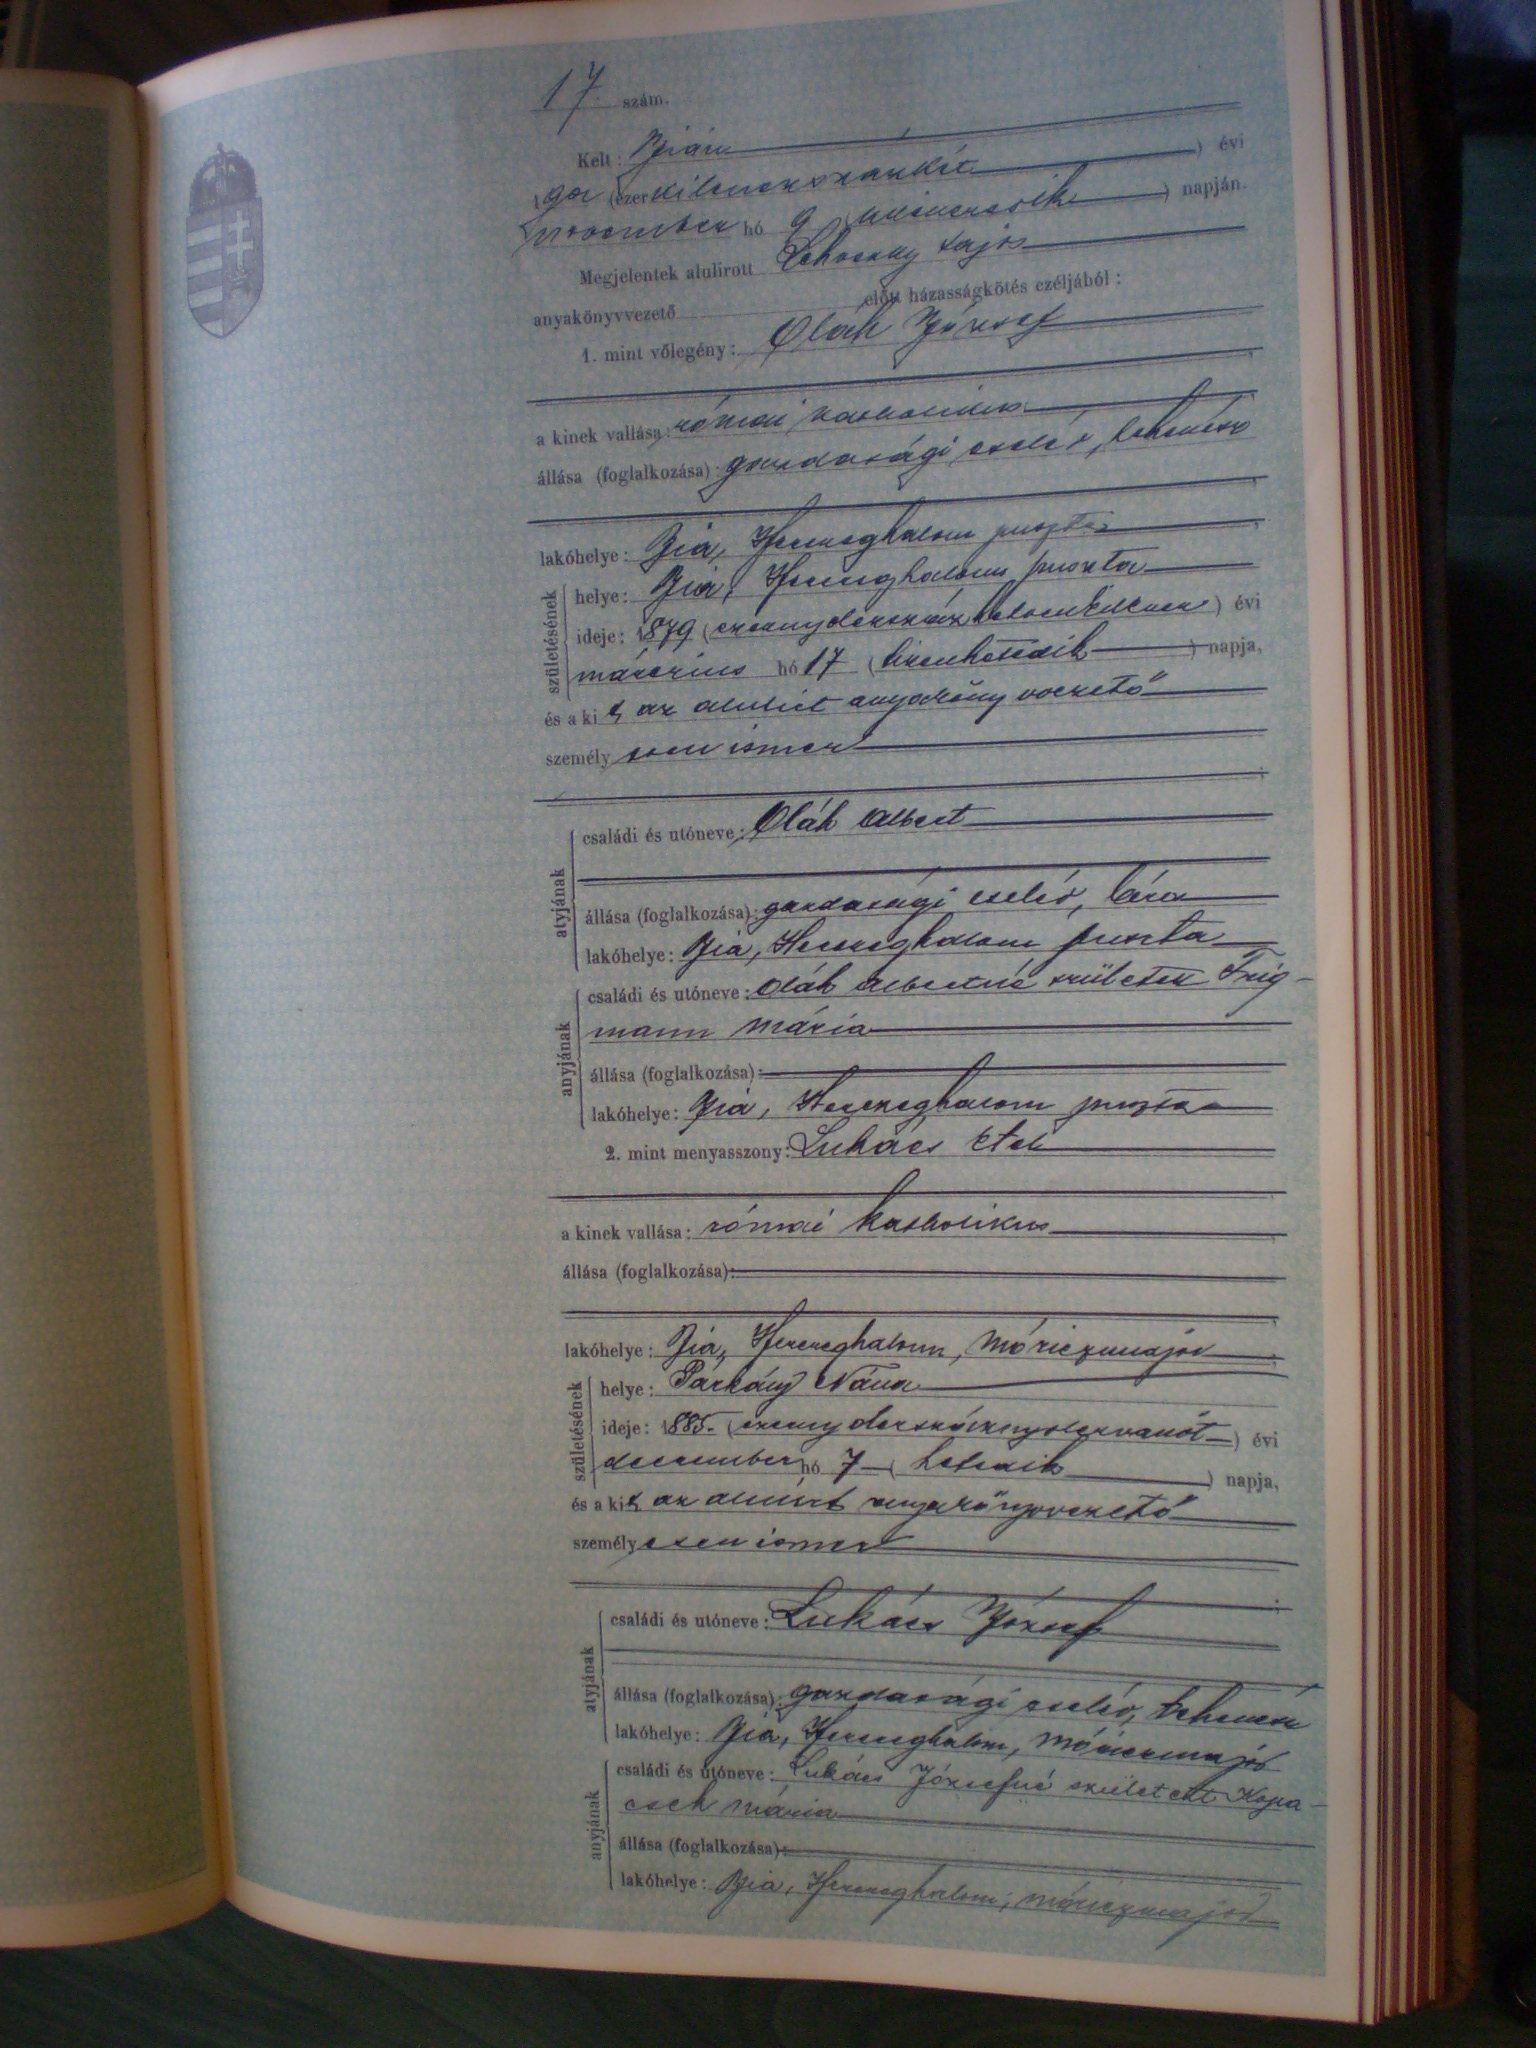 17. szám.
Kelt: Bián
1902 (ezer kilenczszázkét ) évi
november hó 9 (kilenczedik ) napján.
Megjelentek alulírott Lehoczky Lajos
anyakönyvvezető előtt házasságkötés czéljából:
1. mint vőlegény: Oláh József
a kinek vallása: római katholikus
állása (foglalkozása): gazdasági cseléd, tehenész
lakóhelye: Bia, Herczeghalom puszta
születésének
helye: Bia, Herczeghalom puszta
ideje: 1879 (ezernyolczszázhetvenkilencz ) évi
márczius hó 17 (tizenhetedik ) napja,
és a ki t az alulírt anyakönyvvezető
személy esen ismer
atyjának
családi és utóneve: Oláh Albert
állása (foglalkozása): gazdasági cseléd,
lakóhelye: Bia, Herczeghalom puszta
anyjának
családi és utóneve: Oláh Albertné született
mann Mária
állása (foglalkozása):
lakóhelye: Bia, Herczeghalom puszta
2. mint menyasszony: Lukács Etel
a kinek vallása: római katholikus
állása (foglalkozása):
lakóhelye: Bia, Herczeghalom, Móriczmajor
születésének
helye: Párkány Nána
ideje: 1885. (ezernyolczszáznyolczvanöt ) évi
deczember hó 7 (hetedik ) napja,
és a ki t az alulírt anyakönyvvezető
személy esen ismer
atyjának
családi és utóneve: Lukács József
állása (foglalkozása): gazdasági cseléd, tehenész
lakóhelye: Bia, Herczeghalom, Móriczmajor
anyjának
családi és utóneve: Lukács Józsefné született Kopa-
csek Mária
állása (foglalkozása):
lakóhelye: Bia, Herczeghalom, Móriczmajor